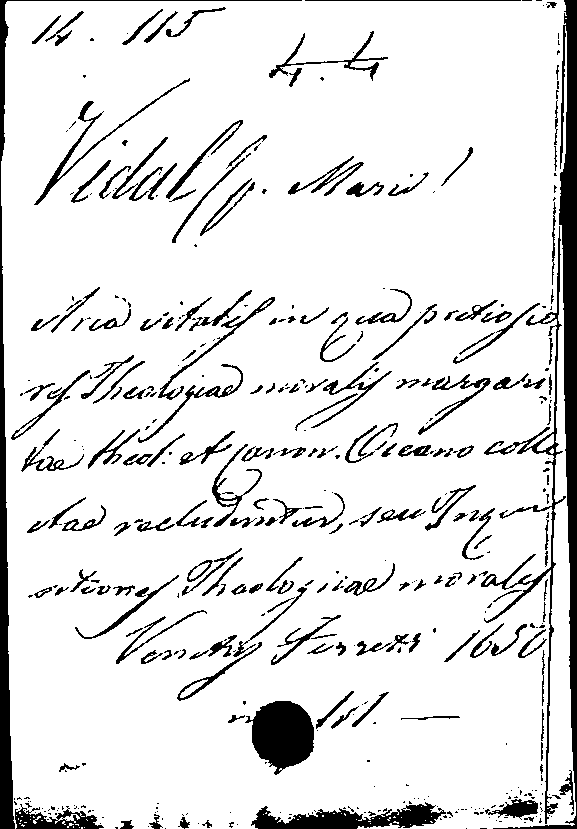 14. 115
4.4
Vidal (p. Mario)
Arca vitalis in qua pretiosio
res Theologiae moralis margari
tae theol: et canon. Oceano colle
ctae recluduntur, seu Inqui
sitiones Theologicae morales
Venetiis Ferretti 1650
in fol. —